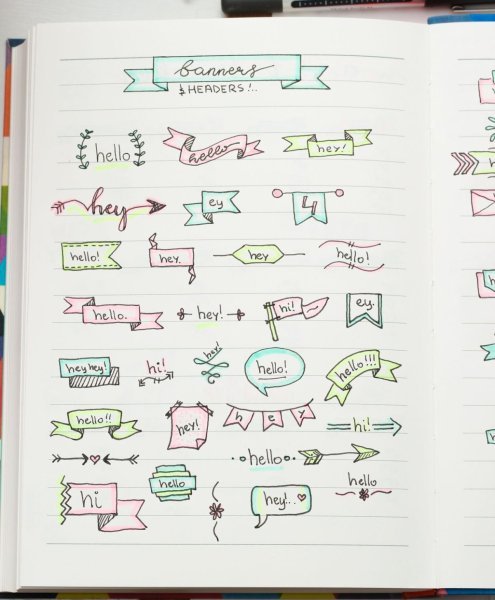 banners
& HEADERS!..
hello
hello
hey!
hey
ey
4
hello!
hey.
hey
hello!
hello.
hey!
hi!
ey.
hey hey!
hi!
hey!
hello!
hello!!!
hello!!
hey!
h e y
hi!
hello
hi
hello
hey!..
hello